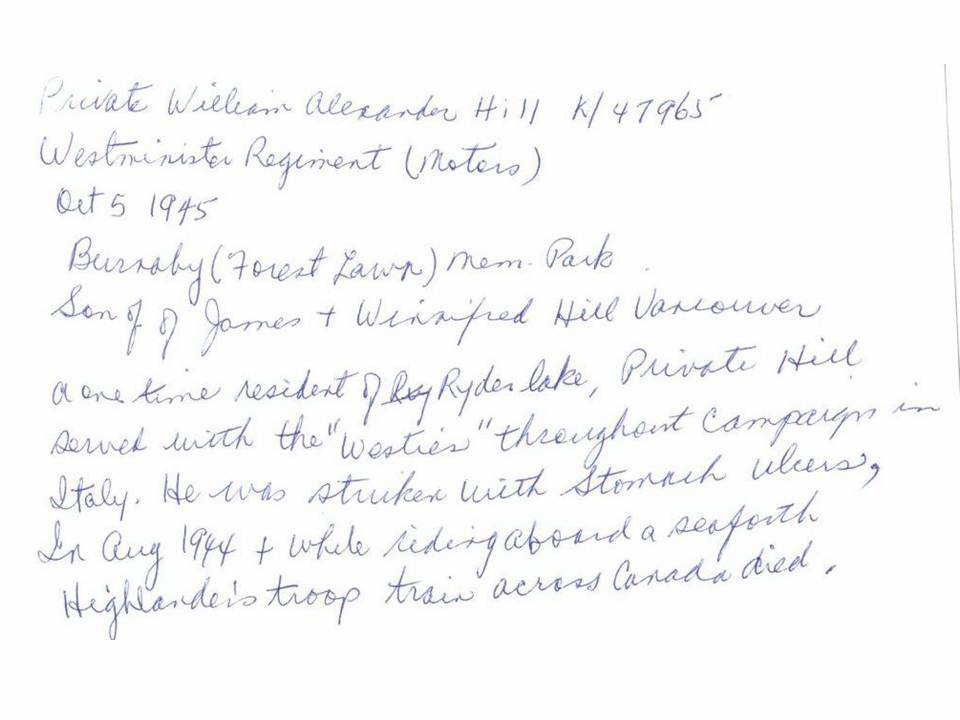 Private William Alexander Hill K/47965
Westminister Regiment (Motors)
Oct 5 1945
Burnaby (Forest Lawn) Mem. Park
Son of of James + Winnifred Hill Vancouver
a one time resident of Ryder lake, Private Hill
served with the "Westies" throughout Campaign in
Italy. He was striken with Stomach ulcers,
In Aug 1944 + while riding aboard a seaforth
Highlanders troop train across Canada died.